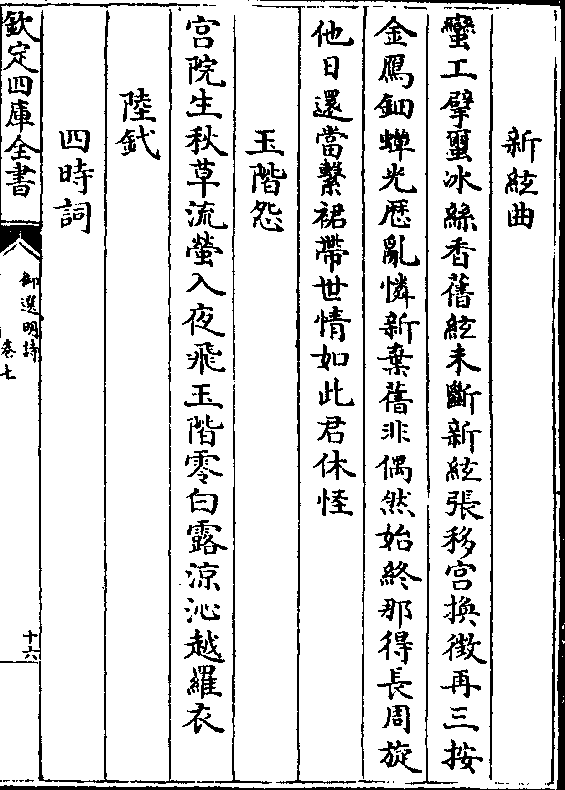 新絃曲
蠻工擘蠒冰絲香舊絃未斷新絃張移宮換徵再三按
金鴈鈿蟬光歴亂憐新棄舊非偶然始終那得長周旋
他日還當繫裙帶世情如此君休怪
玉階怨
宫院生秋草流螢入夜飛玉階零白露涼沁越羅衣
陸釴
四時詞
欽定四庫全書
御選明詩
卷七
十六